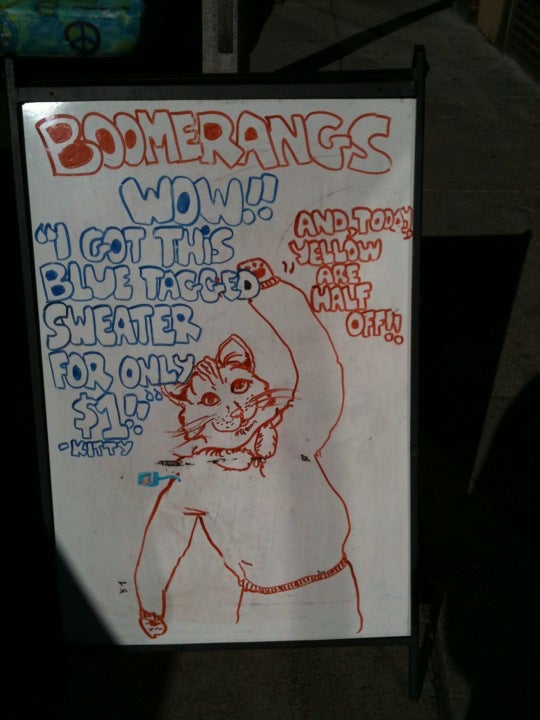 BOOMERANGS
WOW!!
"I GOT THIS
BLUE TAGGED
SWEATER
FOR ONLY
$1!!"
-KITTY
AND, TODAY,
YELLOW
ARE
HALF
OFF!!